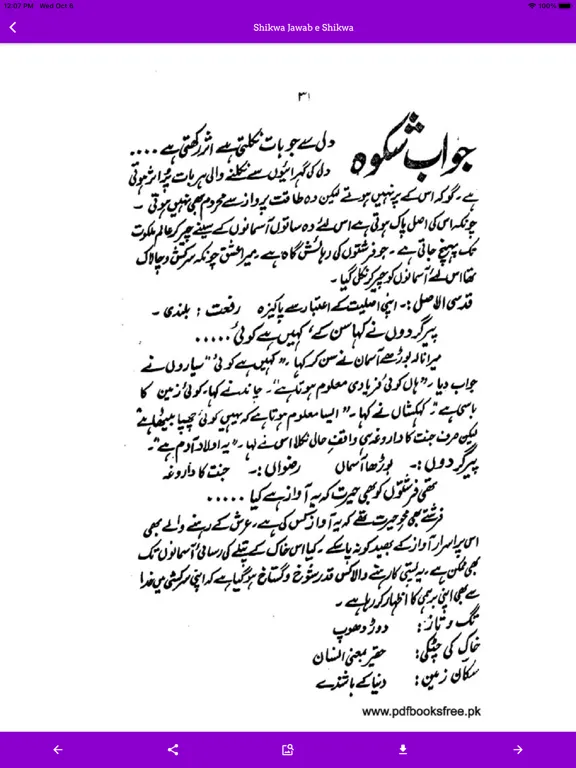 12:07 PM Wed Oct 5
100%
Shikwa Jawab e Shikwa
۳۱
جواب شکوہ
دل سے جو بات نکلتی ہے اثر رکھتی ہے ....
دل کی گہرائیوں سے نکلنے والی ہر بات پُر اثر ہوتی
ہے۔ گو کہ اس کے پر نہیں ہوتے لیکن وہ طاقت پرواز سے محروم بھی نہیں ہوتی ۔
چونکہ اس کی اصل پاک ہوتی ہے اس لئے وہ ساتوں آسمانوں کے سینے چیر کر عالم ملکوت
تک پہنچ جاتی ہے۔ جو فرشتوں کی رہائش گاہ ہے۔ میرا عشق چونکہ سرکش و چالاک
تھا اس لئے آسمانوں کو چیر کر نکل گیا ۔
قدسی الاصل :۔ اپنی اصلیت کے اعتبار سے پاکیزہ رفعت : بلندی ۔
پیر گردوں نے کہا سن کے ، کہیں ہے کوئی .....
میرا نالہ بوڑھے آسمان نے سن کر کہا ۔ "کہیں ہے کوئی" سیاروں نے
جواب دیا ۔ "ہاں کوئی فریادی معلوم ہوتا ہے"۔ چاند نے کہا، کوئی زمین کا
باسی ہے"۔ کہکشاں نے کہا ۔ "ایسا معلوم ہوتا ہے کہ یہیں کوئی چھپا بیٹھا ہے"
لیکن صرف جنت کا داروغہ ہی واقف حال نکلا اس نے کہا ۔ "یہ اولاد آدم ہے"۔
پیر گردوں :۔ بوڑھا آسمان رضواں :۔ جنت کا داروغہ
تھی فرشتوں کو بھی حیرت کہ یہ آواز ہے کیا .....
فرشتے بھی محو حیرت تھے کہ یہ آواز کس کی ہے۔ عرش کے رہنے والے بھی
اس پر اسرار آواز کے بھید کو نہ پا سکے۔ کیا اس خاک کے پتلے کی رسائی آسمانوں تک
بھی ممکن ہے۔ یہ پستی کا رہنے والا کس قدر شوخ و گستاخ ہو گیا ہے کہ اپنی سرکشی میں خدا
سے بھی اپنی برہمی کا اظہار کر رہا ہے ۔
تگ و تاز : دوڑ دھوپ
خاک کی چٹکی : حقیر بمعنی انسان
سکان زمین : دنیا کے باشندے
www.pdfbooksfree.pk